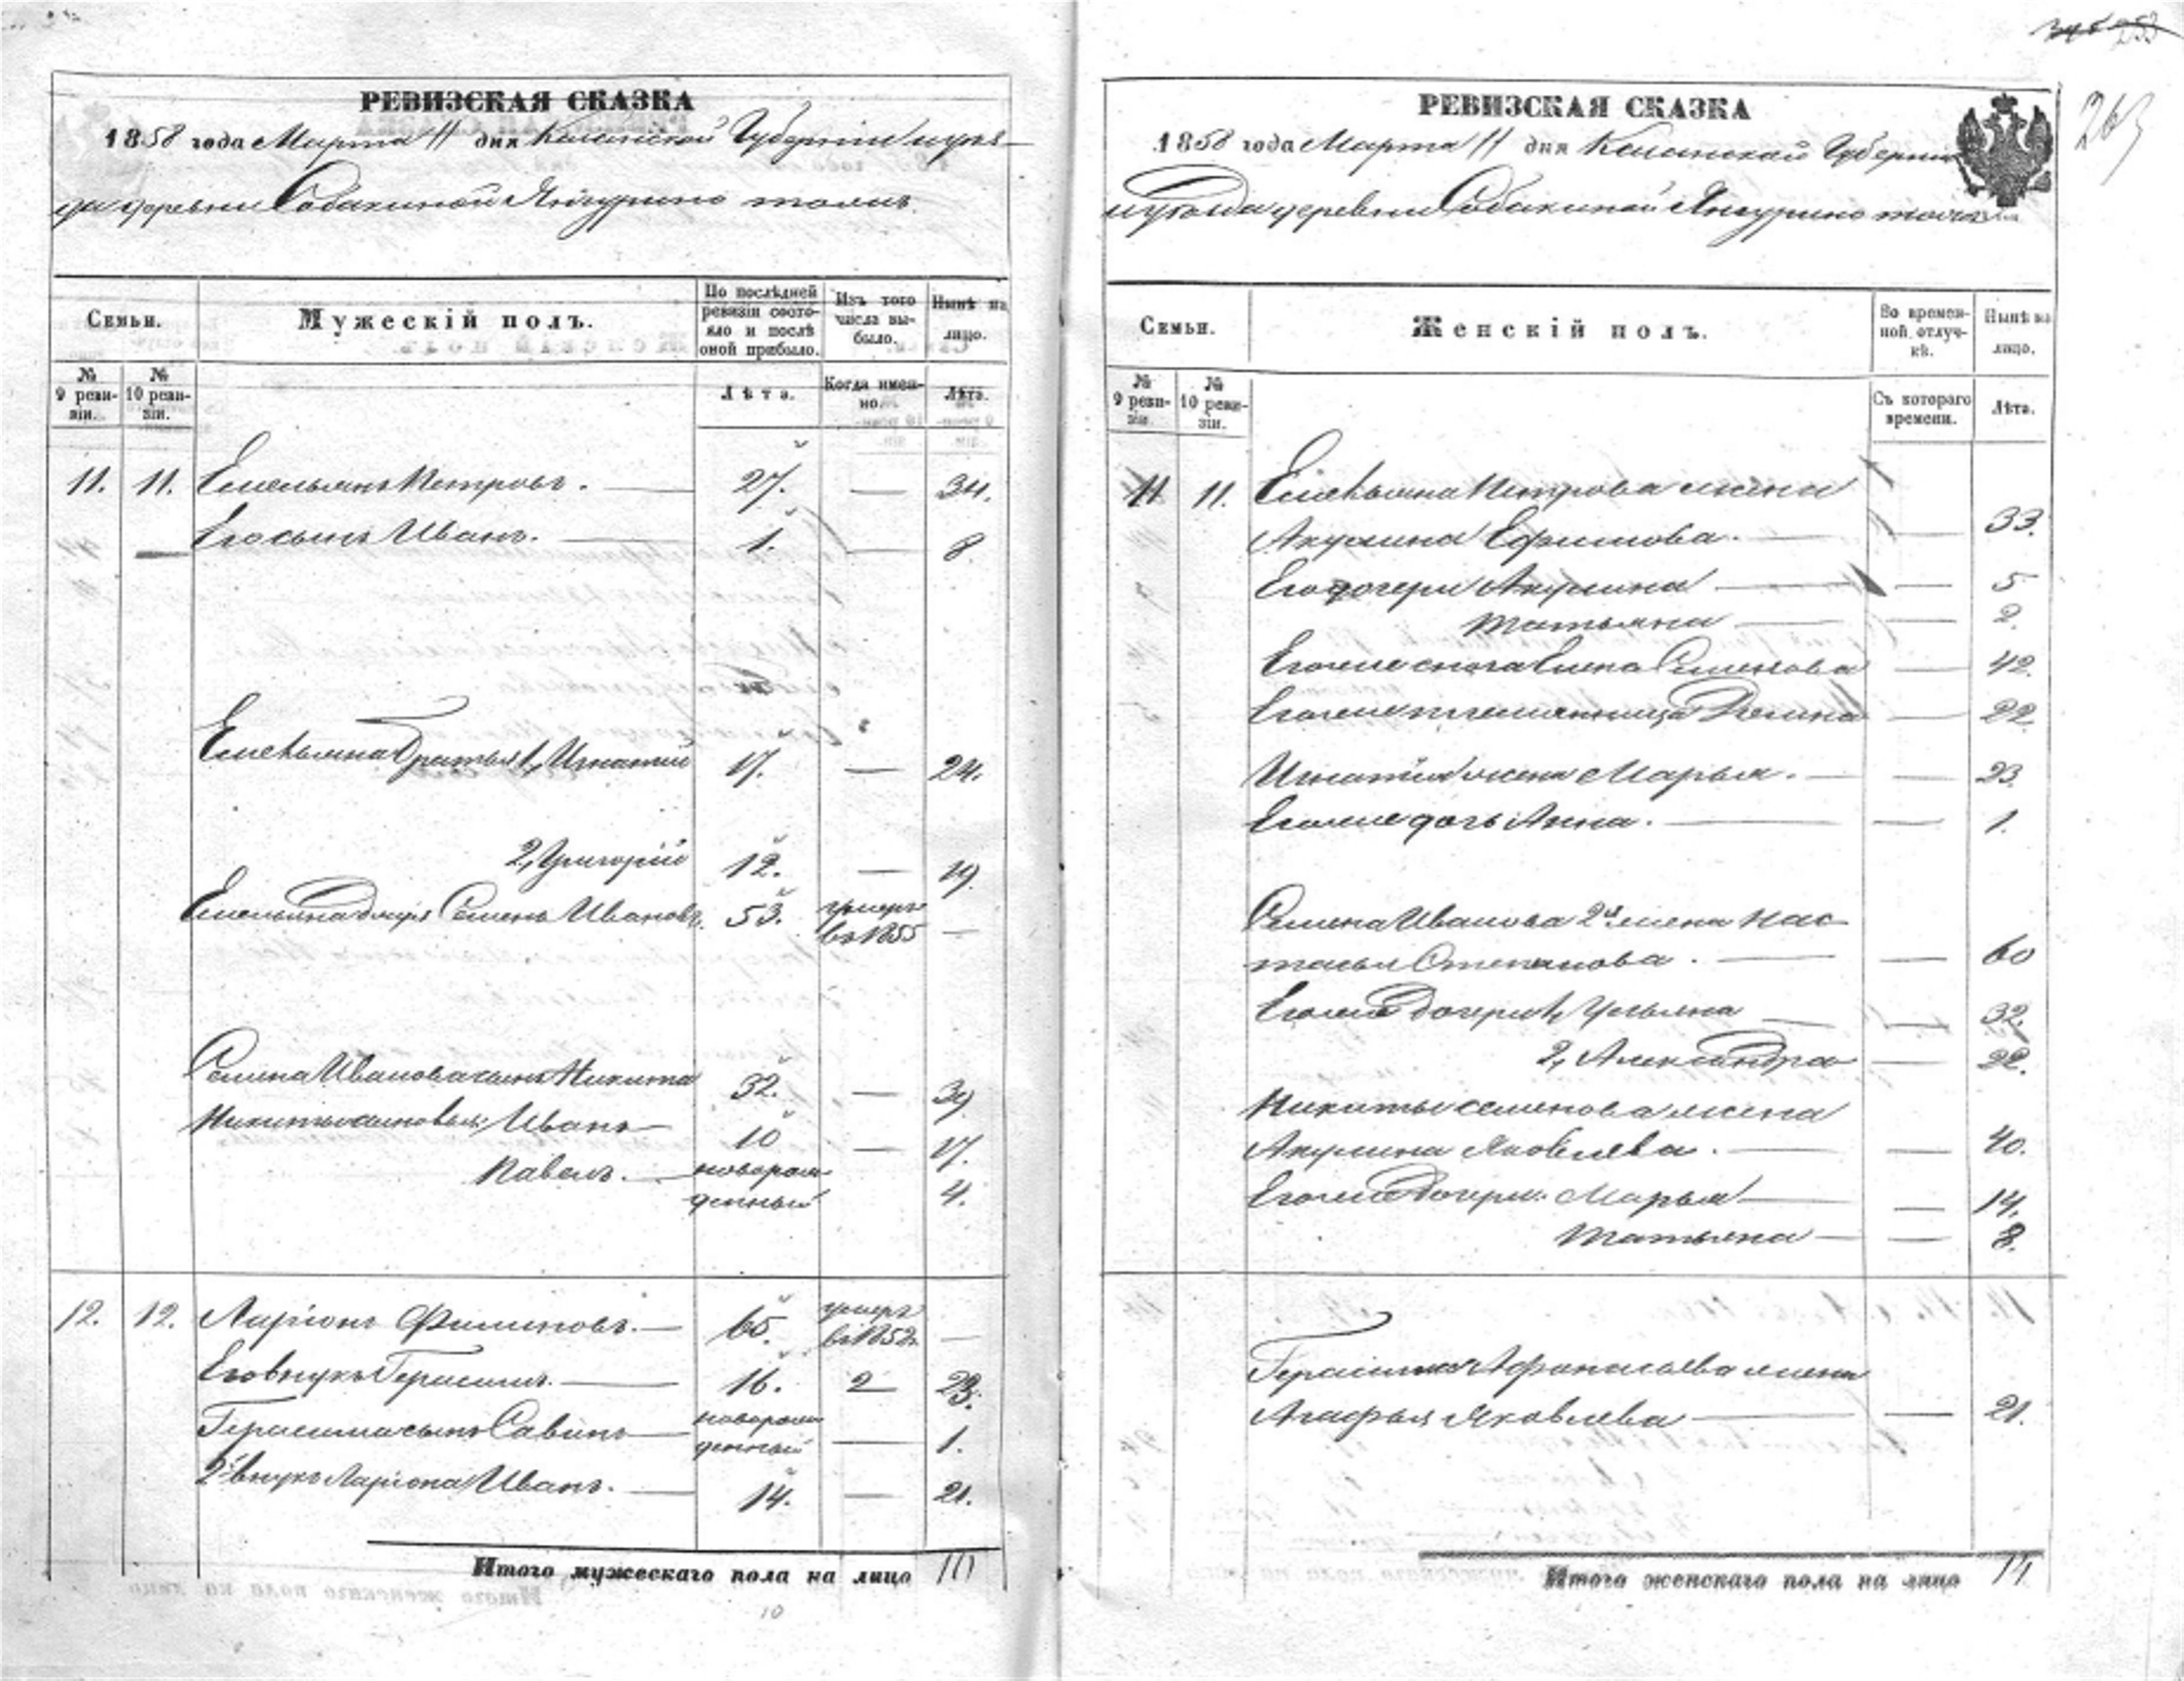 253
263
РЕВИЗСКАЯ СКАЗКА
1858 года Марта 11 дня Казанской Губернии
деревни Собакиной Янгурино тожъ
Семьи.
Мужескій полъ.
По послѣдней ревизіи состояло и послѣ оной прибыло.
Изъ того числа выбыло.
Нынѣ на лицо.
№ 9 ревизіи.
№ 10 ревизіи.
Лѣта.
Когда именно.
Лѣта.
11. 11. Емельянъ Петровъ. 27. — 34.
Его сынъ Иванъ. 1. — 8
Емельяна братья 1, Игнатий 17. — 24.
2, Григорій 12. — 19.
Емельяна дядя Семенъ Ивановъ. 53. умеръ —
въ 1855
Семена Иванова сынъ Никита 32. — 39
Никиты сыновья, Иванъ 10 — 17.
Павелъ. новорож 4.
денный
12. 12. Ларіонъ Филиповъ. 65. умеръ —
въ 1852
Его внукъ Герасимъ. 16. 2 23.
Герасима сынъ Савинъ новорож — 1.
денный
2й внукъ Ларіона Иванъ. 14. — 21.
Итого мужескаго пола на лицо 10
10
РЕВИЗСКАЯ СКАЗКА
1858 года Марта 11 дня Казанской Губерніи
деревни Собакиной Янгурино тожъ
Семьи.
Женскій полъ.
Во временной отлучкѣ.
Нынѣ на лицо.
№ 9 ревизіи.
№ 10 ревизіи.
Съ котораго времени.
Лѣта.
11 11. Емельяна Петрова жена
Акулина Ефимова. — 33.
Его дочери Акулина — 5
Татьяна — 2.
Егоже сноха Елена Семенова — 42.
Егоже племянница — 22.
Игнатия жена Марья. — 23.
Егоже дочь Анна. — 1.
Семена Иванова 2я жена Нас
тасья Степанова. — 60
Егоже дочери 1, Ульяна — 32.
2, Александра — 22.
Никиты Семенова жена
Акулина Яковлева. — 40.
Егоже дочери. Марья — 14.
Татьяна — 8.
Герасима Афанасьева жена
Агафья Яковлева — 21.
Итого женскаго пола на лицо 14